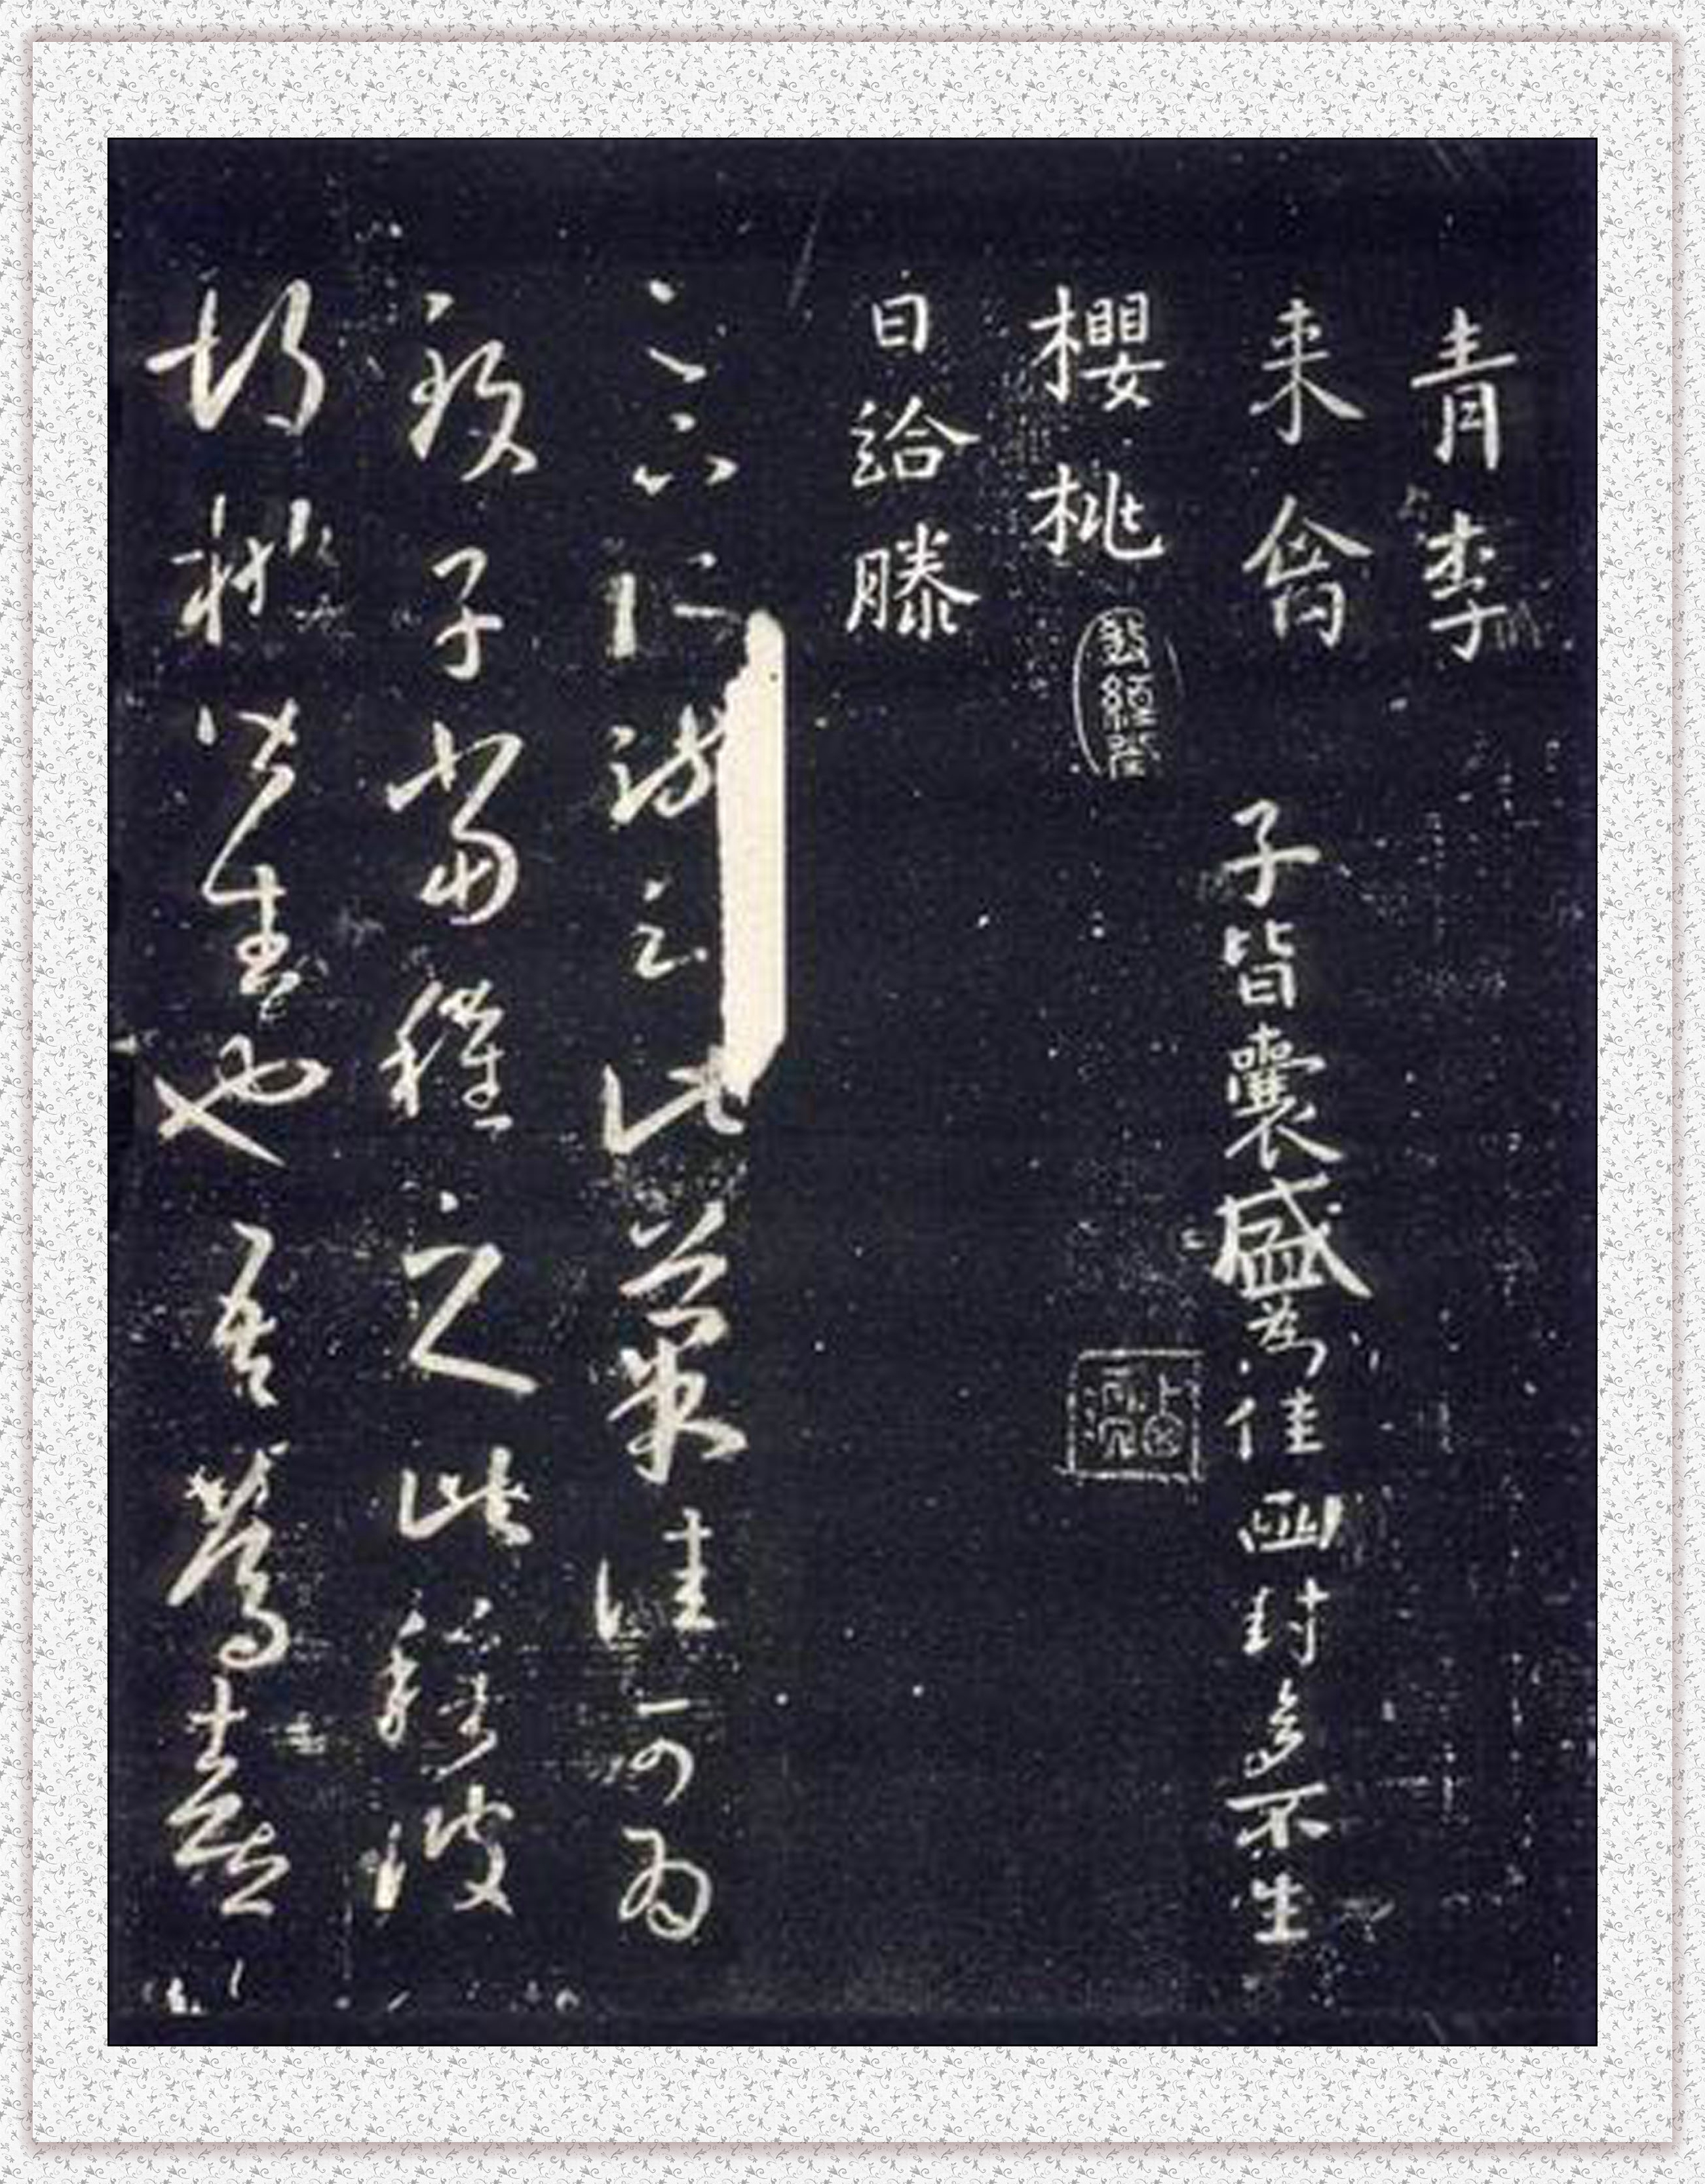 青李
来禽 子皆囊盛為佳函封多不生
櫻桃
日給滕
足下所疏云此菓佳可為
致子當種之此種彼
胡桃皆生也吾篤喜